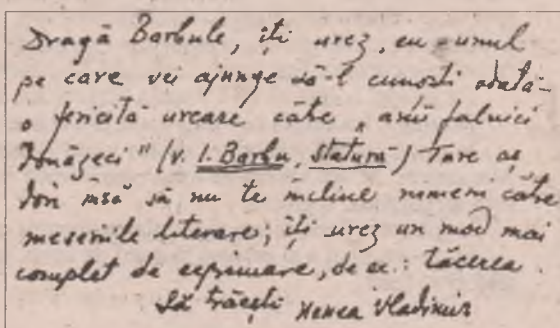 Dragă Barbule, îti urez, eu - unul
pe care vei ajunge să-l cunosti odată -
o fericită urcare către „anii falnici
douăzeci" (v. I. Barbu, statură) Tare aș
dori însă să nu te incline nimeni către
meseriile literare; îti urez un mod mai
complet de exprimare, de ex.: tăcerea.
Să trăești Nenea Vladimir